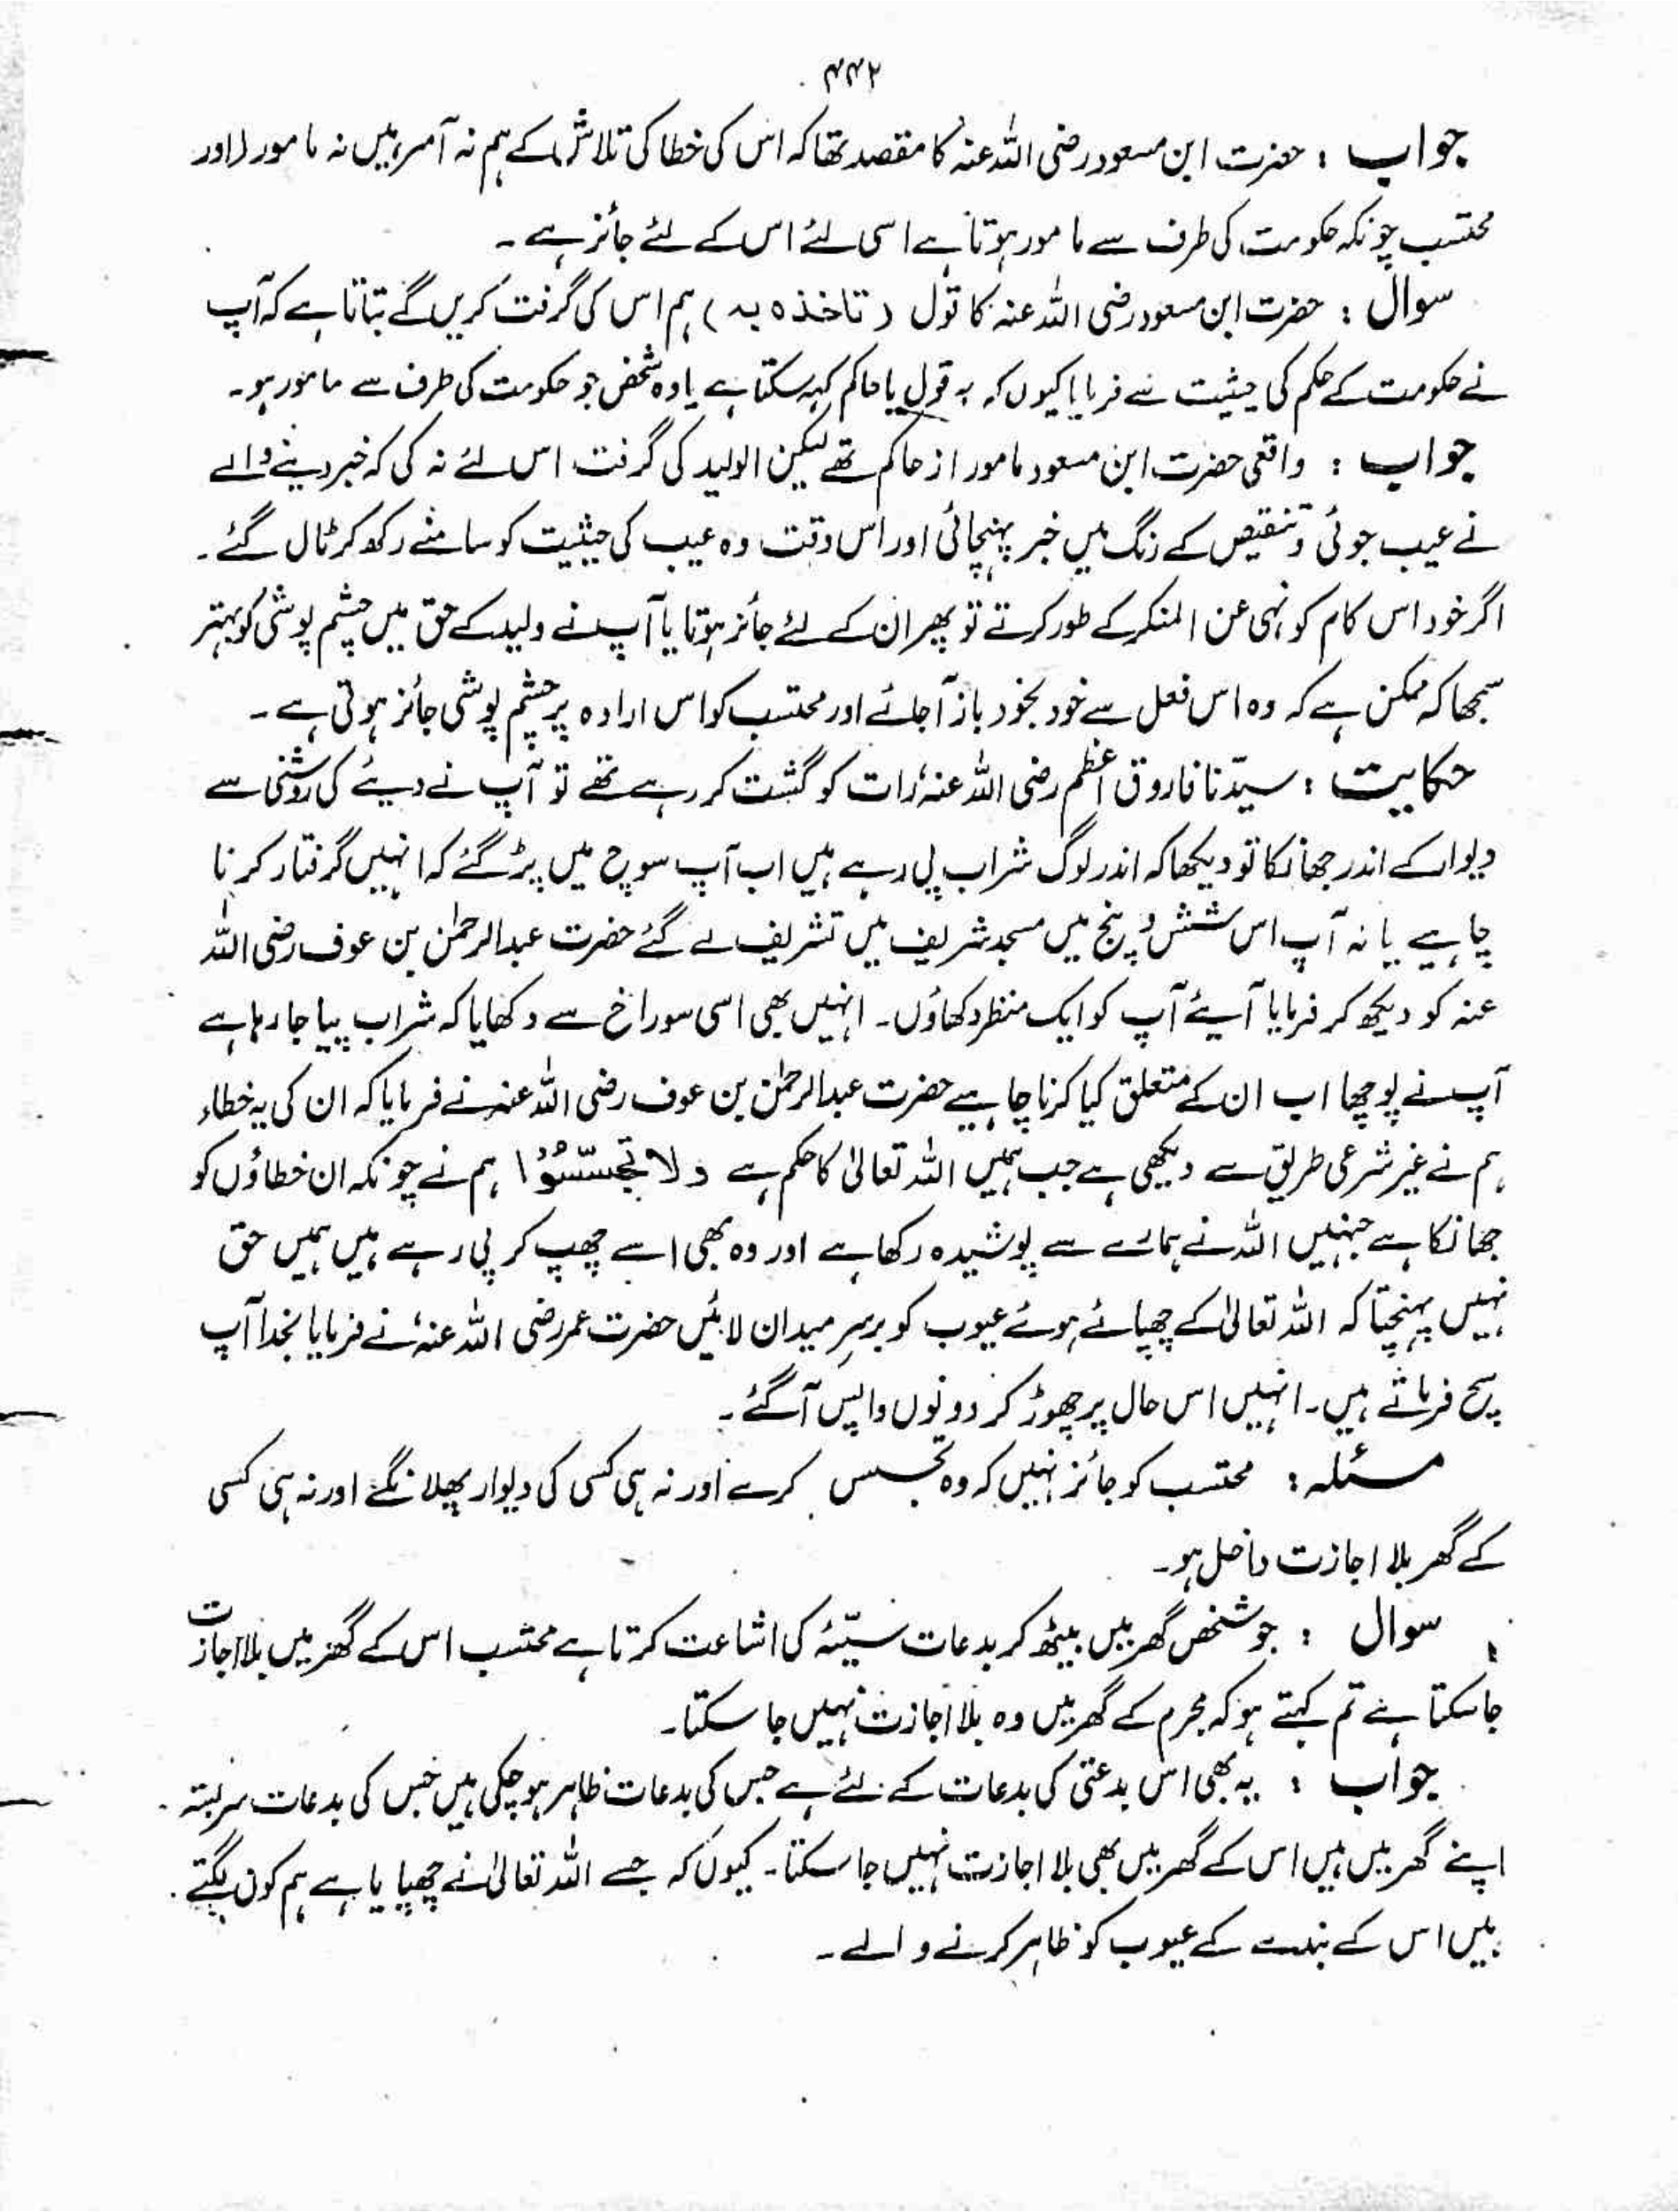 ۴۴۲
جواب : حضرت ابن مسعود رضی اللہ عنہ کا مقصد تھا کہ اس کی خطا کی تلاش کے ہم نہ آمر ہیں نہ مامور (اور
محتسب چونکہ حکومت کی طرف سے مامور ہوتا ہے اسی لئے اس کے لئے جائز ہے ۔
سوال : حضرت ابن مسعود رضی اللہ عنہ کا قول ( تاخذہ بہ ) ہم اس کی گرفت کریں گے بتاتا ہے کہ آپ
نے حکومت کے حکم کی حیثیت سے فرمایا کیوں کہ یہ قول یا حاکم کہہ سکتا ہے یا وہ شخص جو حکومت کی طرف سے مامور ہو۔
جواب : واقعی حضرت ابن مسعود مامور از حاکم تھے لیکن الولید کی گرفت اس لئے نہ کی کہ خبر دینے والے
نے عیب جوئی و تنقیص کے رنگ میں خبر پہنچائی اور اس وقت وہ عیب کی حیثیت کو سامنے رکھ کر ٹال گئے ۔
اگر خود اس کام کو نہی عن المنکر کے طور کرتے تو پھر ان کے لئے جائز ہوتا یا آپ نے ولید کے حق میں چشم پوشی کو بہتر
سمجھا کہ ممکن ہے کہ وہ اس فعل سے خود بخود باز آجائے اور محتسب کو اس ارادہ پر چشم پوشی جائز ہوتی ہے ۔
حکایت : سیّدنا فاروق اعظم رضی اللہ عنہ رات کو گشت کر رہے تھے تو آپ نے دیئے کی روشنی سے
دیوار کے اندر جھانکا تو دیکھا کہ اندر لوگ شراب پی رہے ہیں اب آپ سوچ میں پڑ گئے کہ انہیں گرفتار کرنا
چاہیے یا نہ آپ اس شش و پنج میں مسجد شریف میں تشریف لے گئے حضرت عبدالرحمٰن بن عوف رضی اللہ
عنہ کو دیکھ کر فرمایا آیئے آپ کو ایک منظر دکھاؤں۔ انہیں بھی اسی سوراخ سے دکھایا کہ شراب پیا جا رہا ہے
آپ نے پوچھا اب ان کے متعلق کیا کرنا چاہیے حضرت عبدالرحمٰن بن عوف رضی اللہ عنہ نے فرمایا کہ ان کی یہ خطاء
ہم نے غیر شرعی طریق سے دیکھی ہے جب ہمیں اللہ تعالیٰ کا حکم ہے ولا تجسّسُوْا ہم نے چونکہ ان خطاؤں کو
جھانکا ہے جنہیں اللہ نے ہمارے سے پوشیدہ رکھا ہے اور وہ بھی اسے چھپ کر پی رہے ہیں ہمیں حق
نہیں پہنچتا کہ اللہ تعالیٰ کے چھپائے ہوئے عیوب کو برسرِ میدان لائیں حضرت عمر رضی اللہ عنہ نے فرمایا بخدا آپ
سچ فرماتے ہیں۔ انہیں اس حال پر چھوڑ کر دونوں واپس آگئے ۔
مسئلہ : محتسب کو جائز نہیں کہ وہ تجسس کرے اور نہ ہی کسی کی دیوار پھلانگے اور نہ ہی کسی
کے گھر بلا اجازت داخل ہو۔
سوال : جو شخص گھر میں بیٹھ کر بدعات سیّئہ کی اشاعت کرتا ہے محتسب اس کے گھر میں بلا اجازت
جا سکتا ہے تم کہتے ہو کہ مجرم کے گھر میں وہ بلا اجازت نہیں جا سکتا۔
جواب : یہ بھی اس بدعتی کی بدعات کے لئے ہے جس کی بدعات ظاہر ہو چکی ہیں جس کی بدعات سربستہ
اپنے گھر میں ہیں اس کے گھر میں بھی بلا اجازت نہیں جا سکتا۔ کیوں کہ جسے اللہ تعالیٰ نے چھپایا ہے ہم کون لگتے
ہیں اس کے بندے کے عیوب کو ظاہر کرنے والے ۔